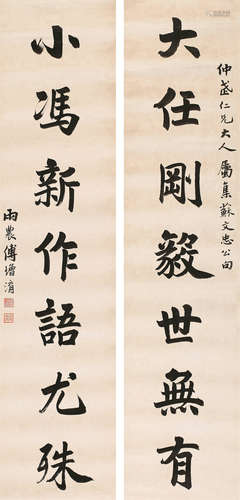 大任剛毅世無有
仲蓫仁兄大人屬集蘇文忠公句
小馮新作語尤殊
雨農傅增淯